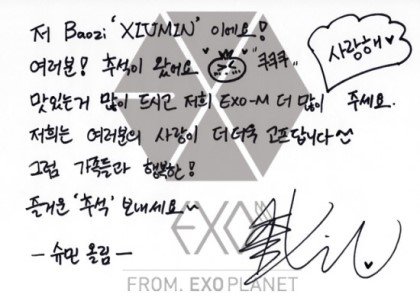 저 Baozi 'XIUMIN' 이에요!
여러분! 추석이 왔어요 "쿠쿠쿠"
사랑해♥
맛있는거 많이 드시고 저희 EXO-M 더 많이 주세요.
저희는 여러분의 사랑이 더더욱 고프답니다^^
그럼 가족들과 행복한!
즐거운 '추석' 보내세요~
EXO M
- 슈민 올림 -
FROM. EXOPLANET